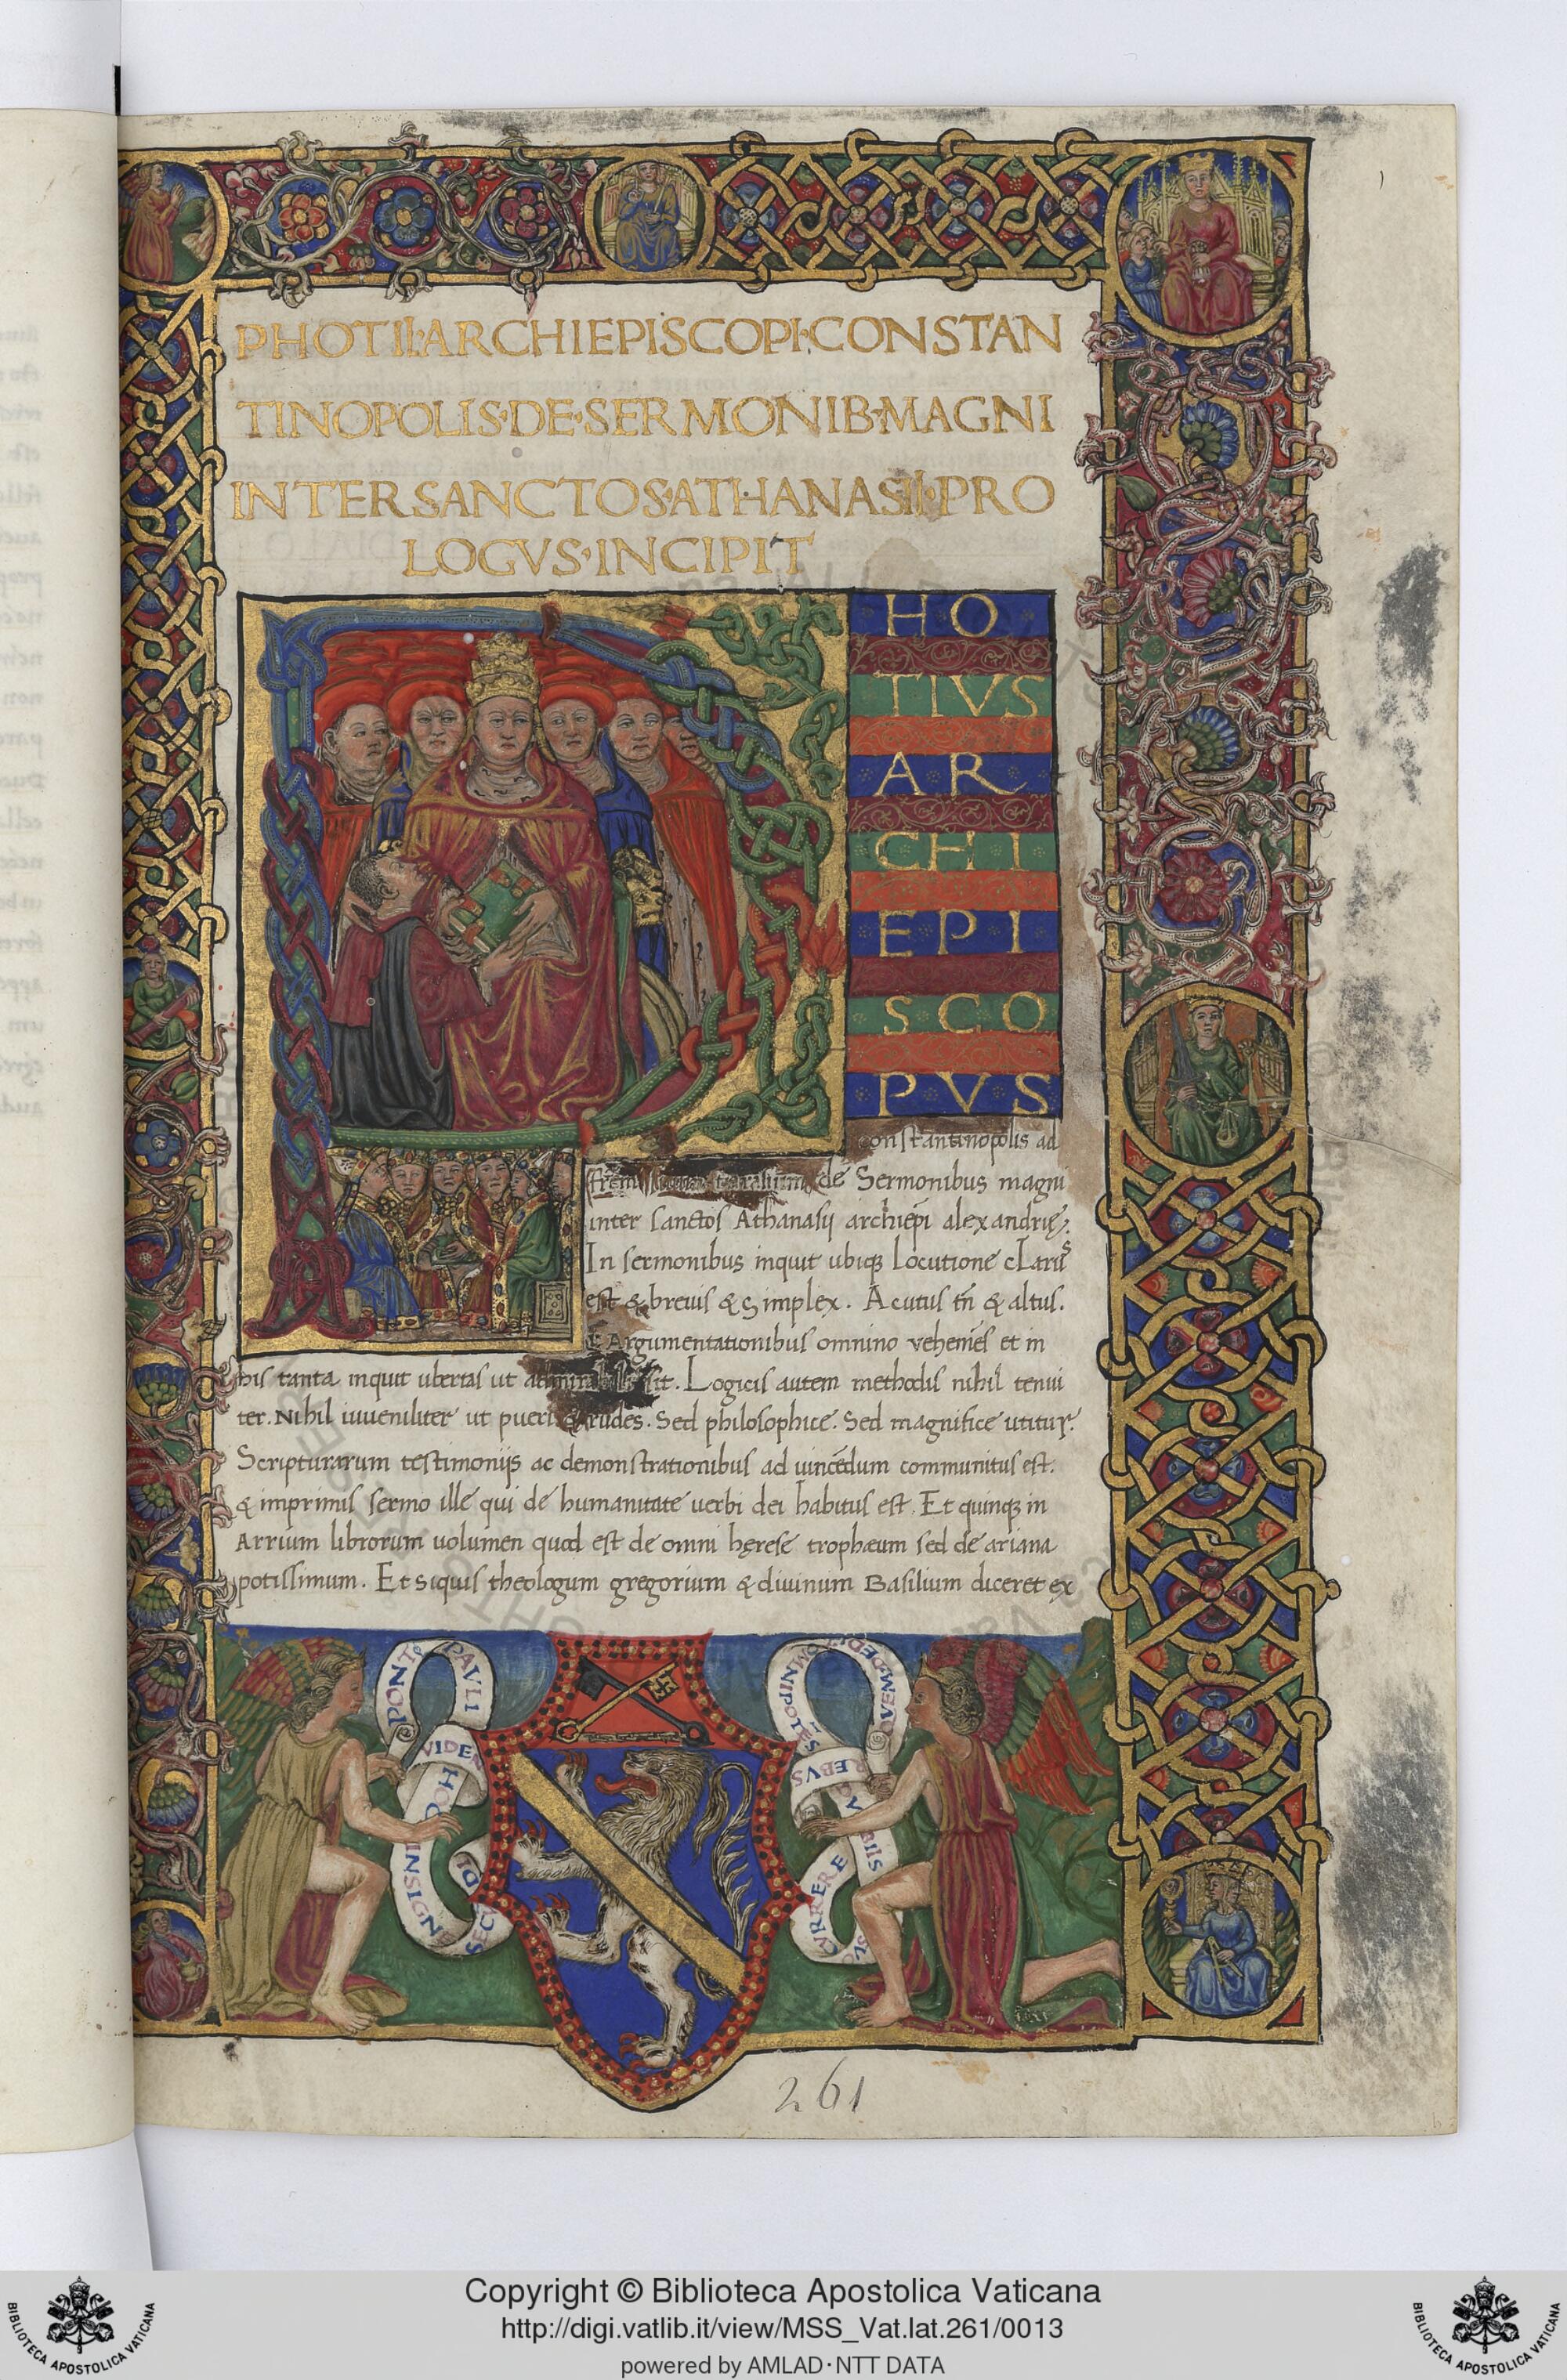 PHOTII·ARCHIEPISCOPI·CONSTAN
TINOPOLIS·DE·SERMONIB·MAGNI
INTER SANCTOS·ATHANASII·PRO
LOGVS·INCIPIT
HO
TIVS
AR
CHI
EPI
SCO
PVS
constantinopolis ad
frem de Sermonibus magni
inter sanctos Athanasij archiepi alexandrię.
In sermonibus inquit ubiqꝫ locutione clarus
est & breuis & simplex. Acutus tn̄ & altus.
& Argumentationibus omnino vehemēs et in
his tanta inquit ubertas ut admirabilis sit. Logicis autem methodis nihil tenui
ter. Nihil iuueniliter ut pueri & rudes. Sed philosophice. Sed magnifice utitur.
Scripturarum testimonijs ac demonstrationibus ad uincēdum communitus est.
& imprimis sermo ille qui de humanitate uerbi dei habitus est. Et quinqꝫ in
Arrium librorum uolumen quod est de omni hęrese trophæum sed de ariana
potissimum. Et siquis theologum gregorium & diuinum Basilium diceret ex
PAVLI
PONT
VIDE
HO
INSIGNE
DI
SECV
OMNIPOTES
REBVS
CVRRERE
261
1
Copyright © Biblioteca Apostolica Vaticana
http://digi.vatlib.it/view/MSS_Vat.lat.261/0013
powered by AMLAD·NTT DATA
BIBLIOTECA APOSTOLICA VATICANA
BIBLIOTECA APOSTOLICA VATICANA